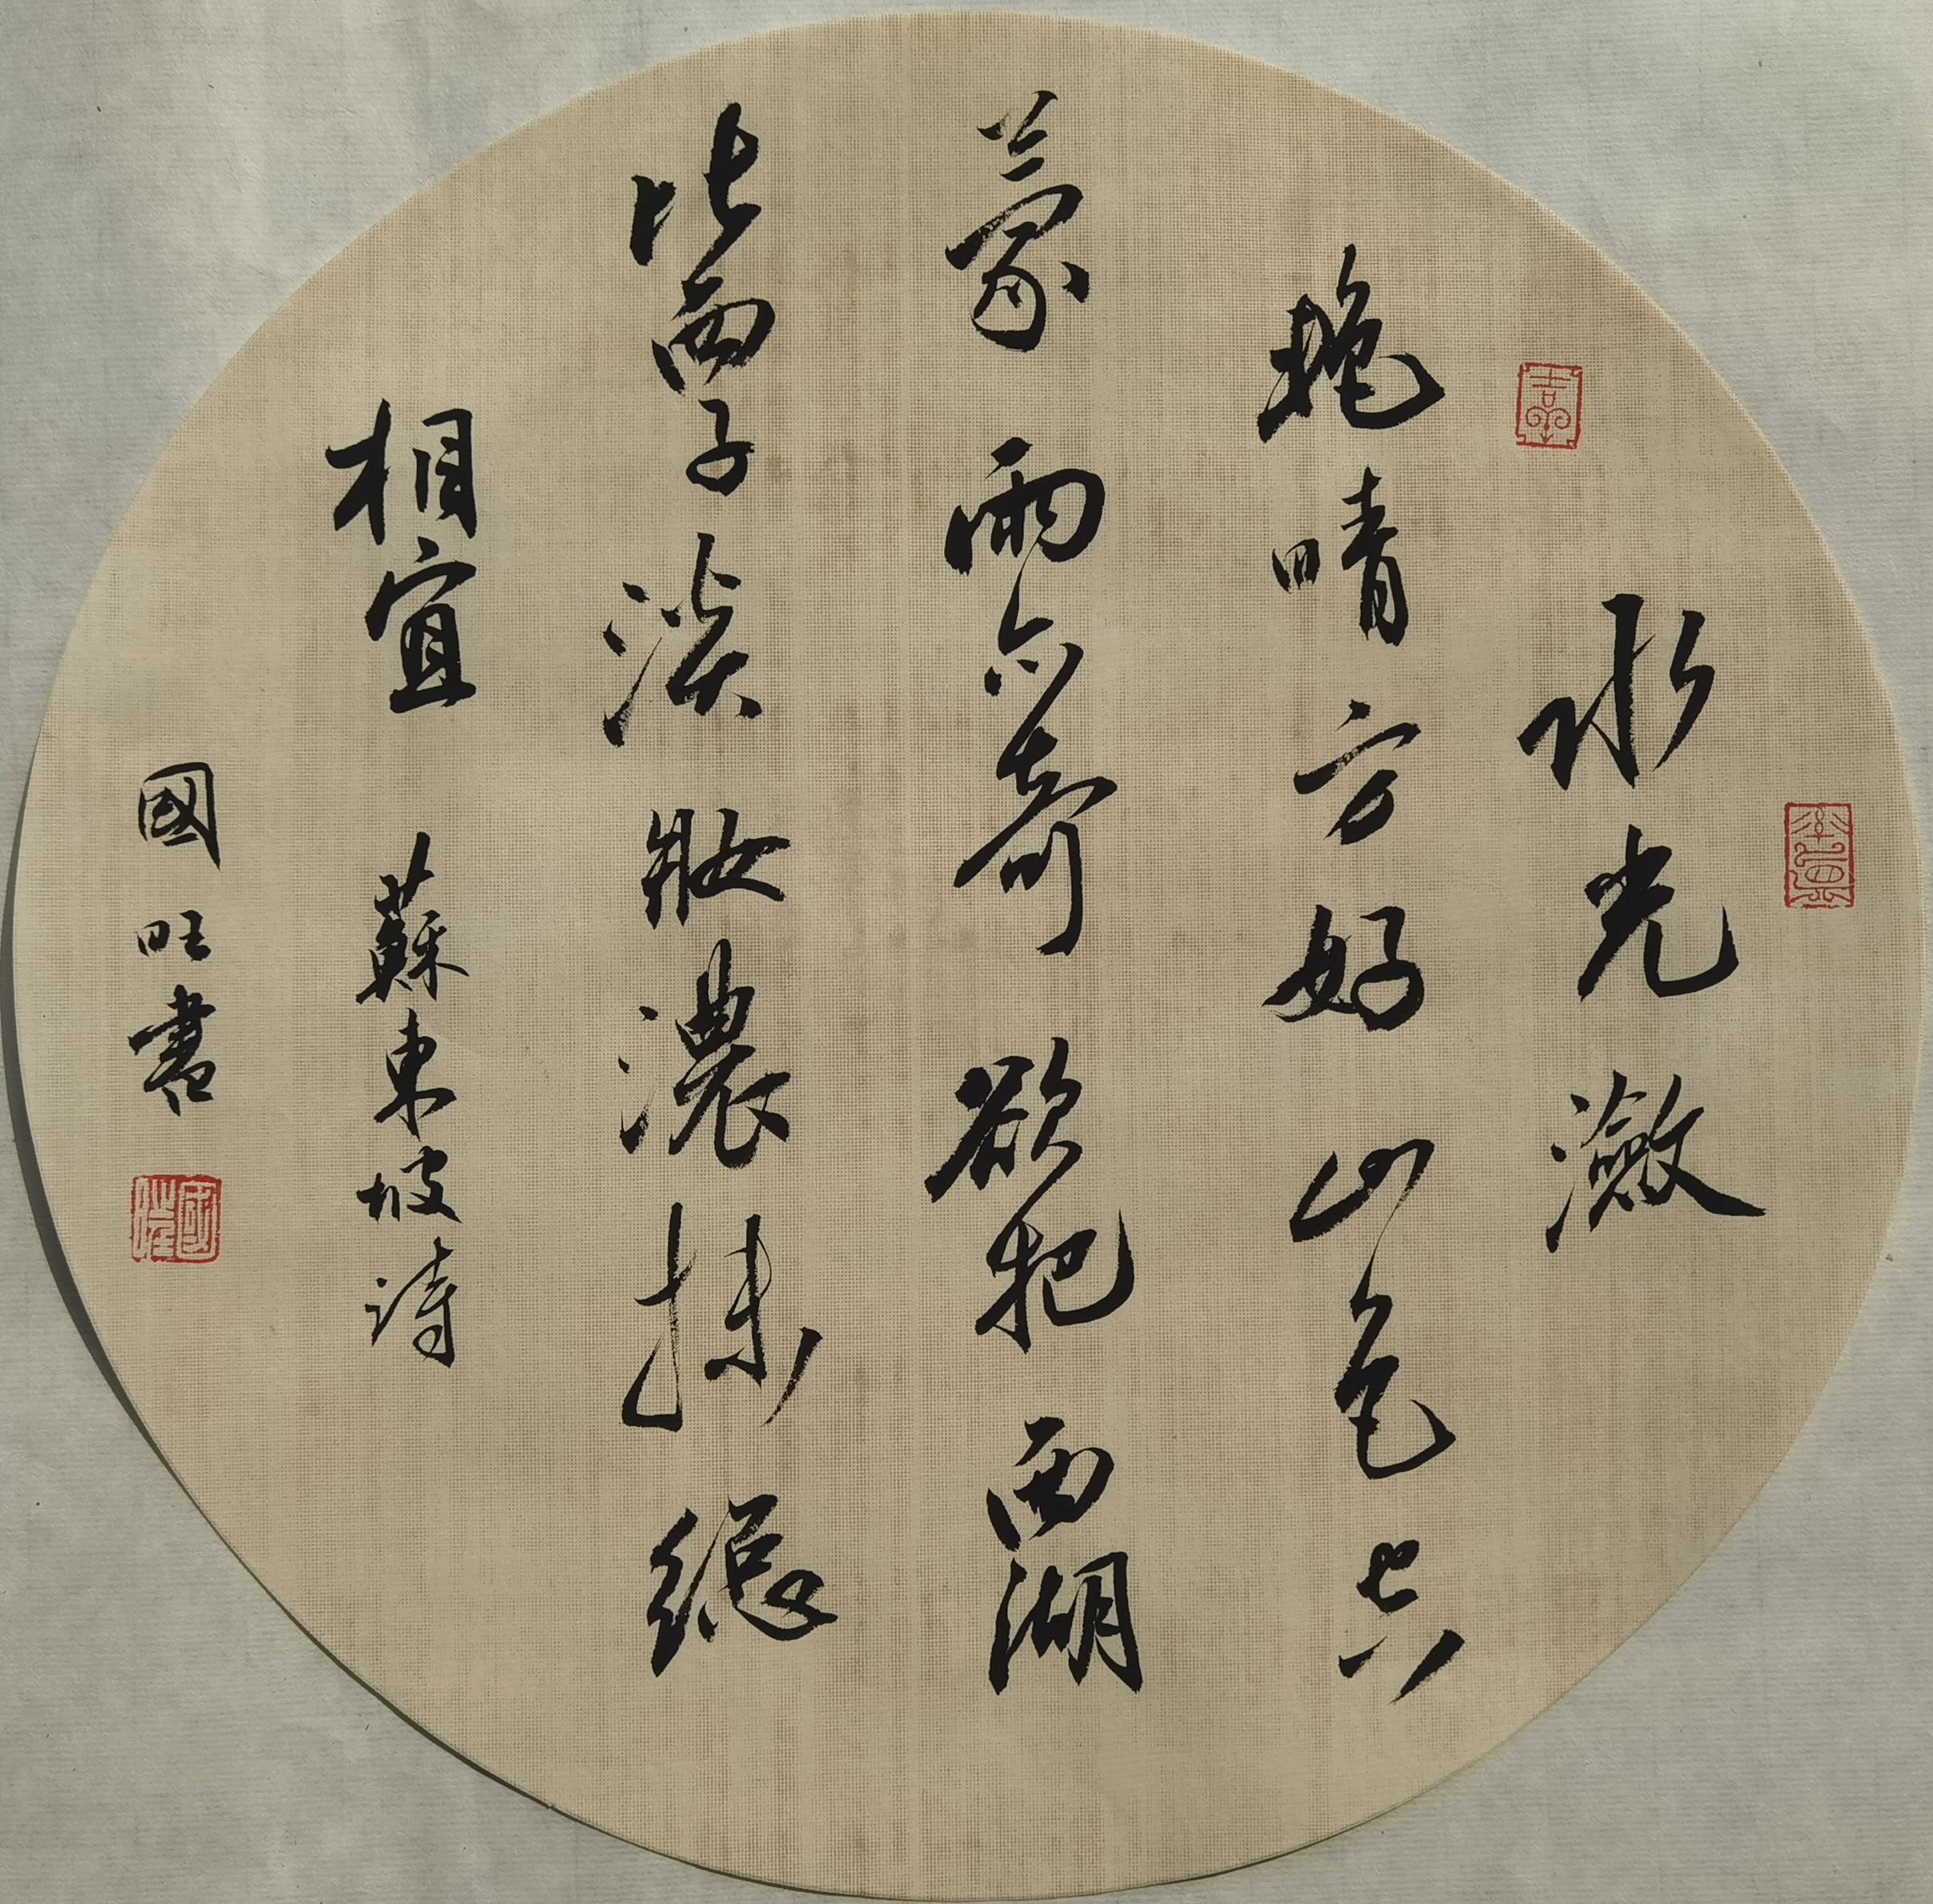 水光瀲
艳晴方好山色空
蒙雨亦奇欲把西湖
比西子淡妝濃抹總
相宜 蘇東坡詩
國旺書
吉羊
國旺